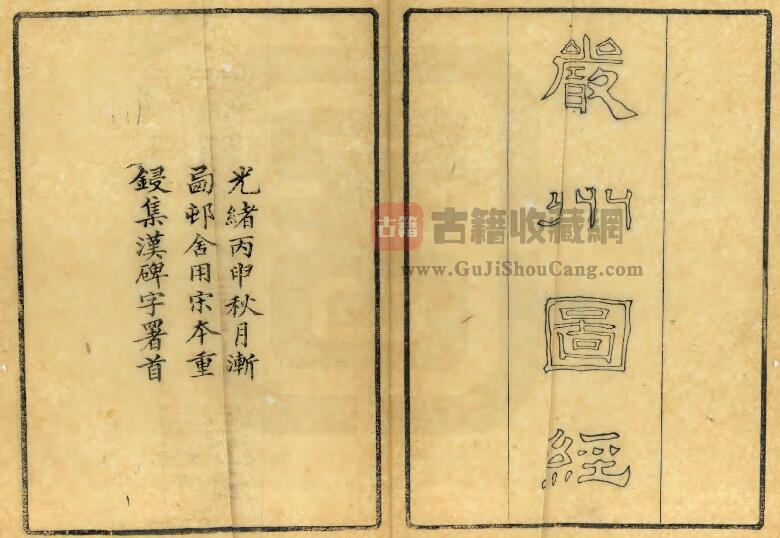 嚴州圖經
光緒丙申秋月漸
西邨舍用宋本重
鋟集漢碑字署首
古籍
古籍收藏網
www.GuJiShouCang.com